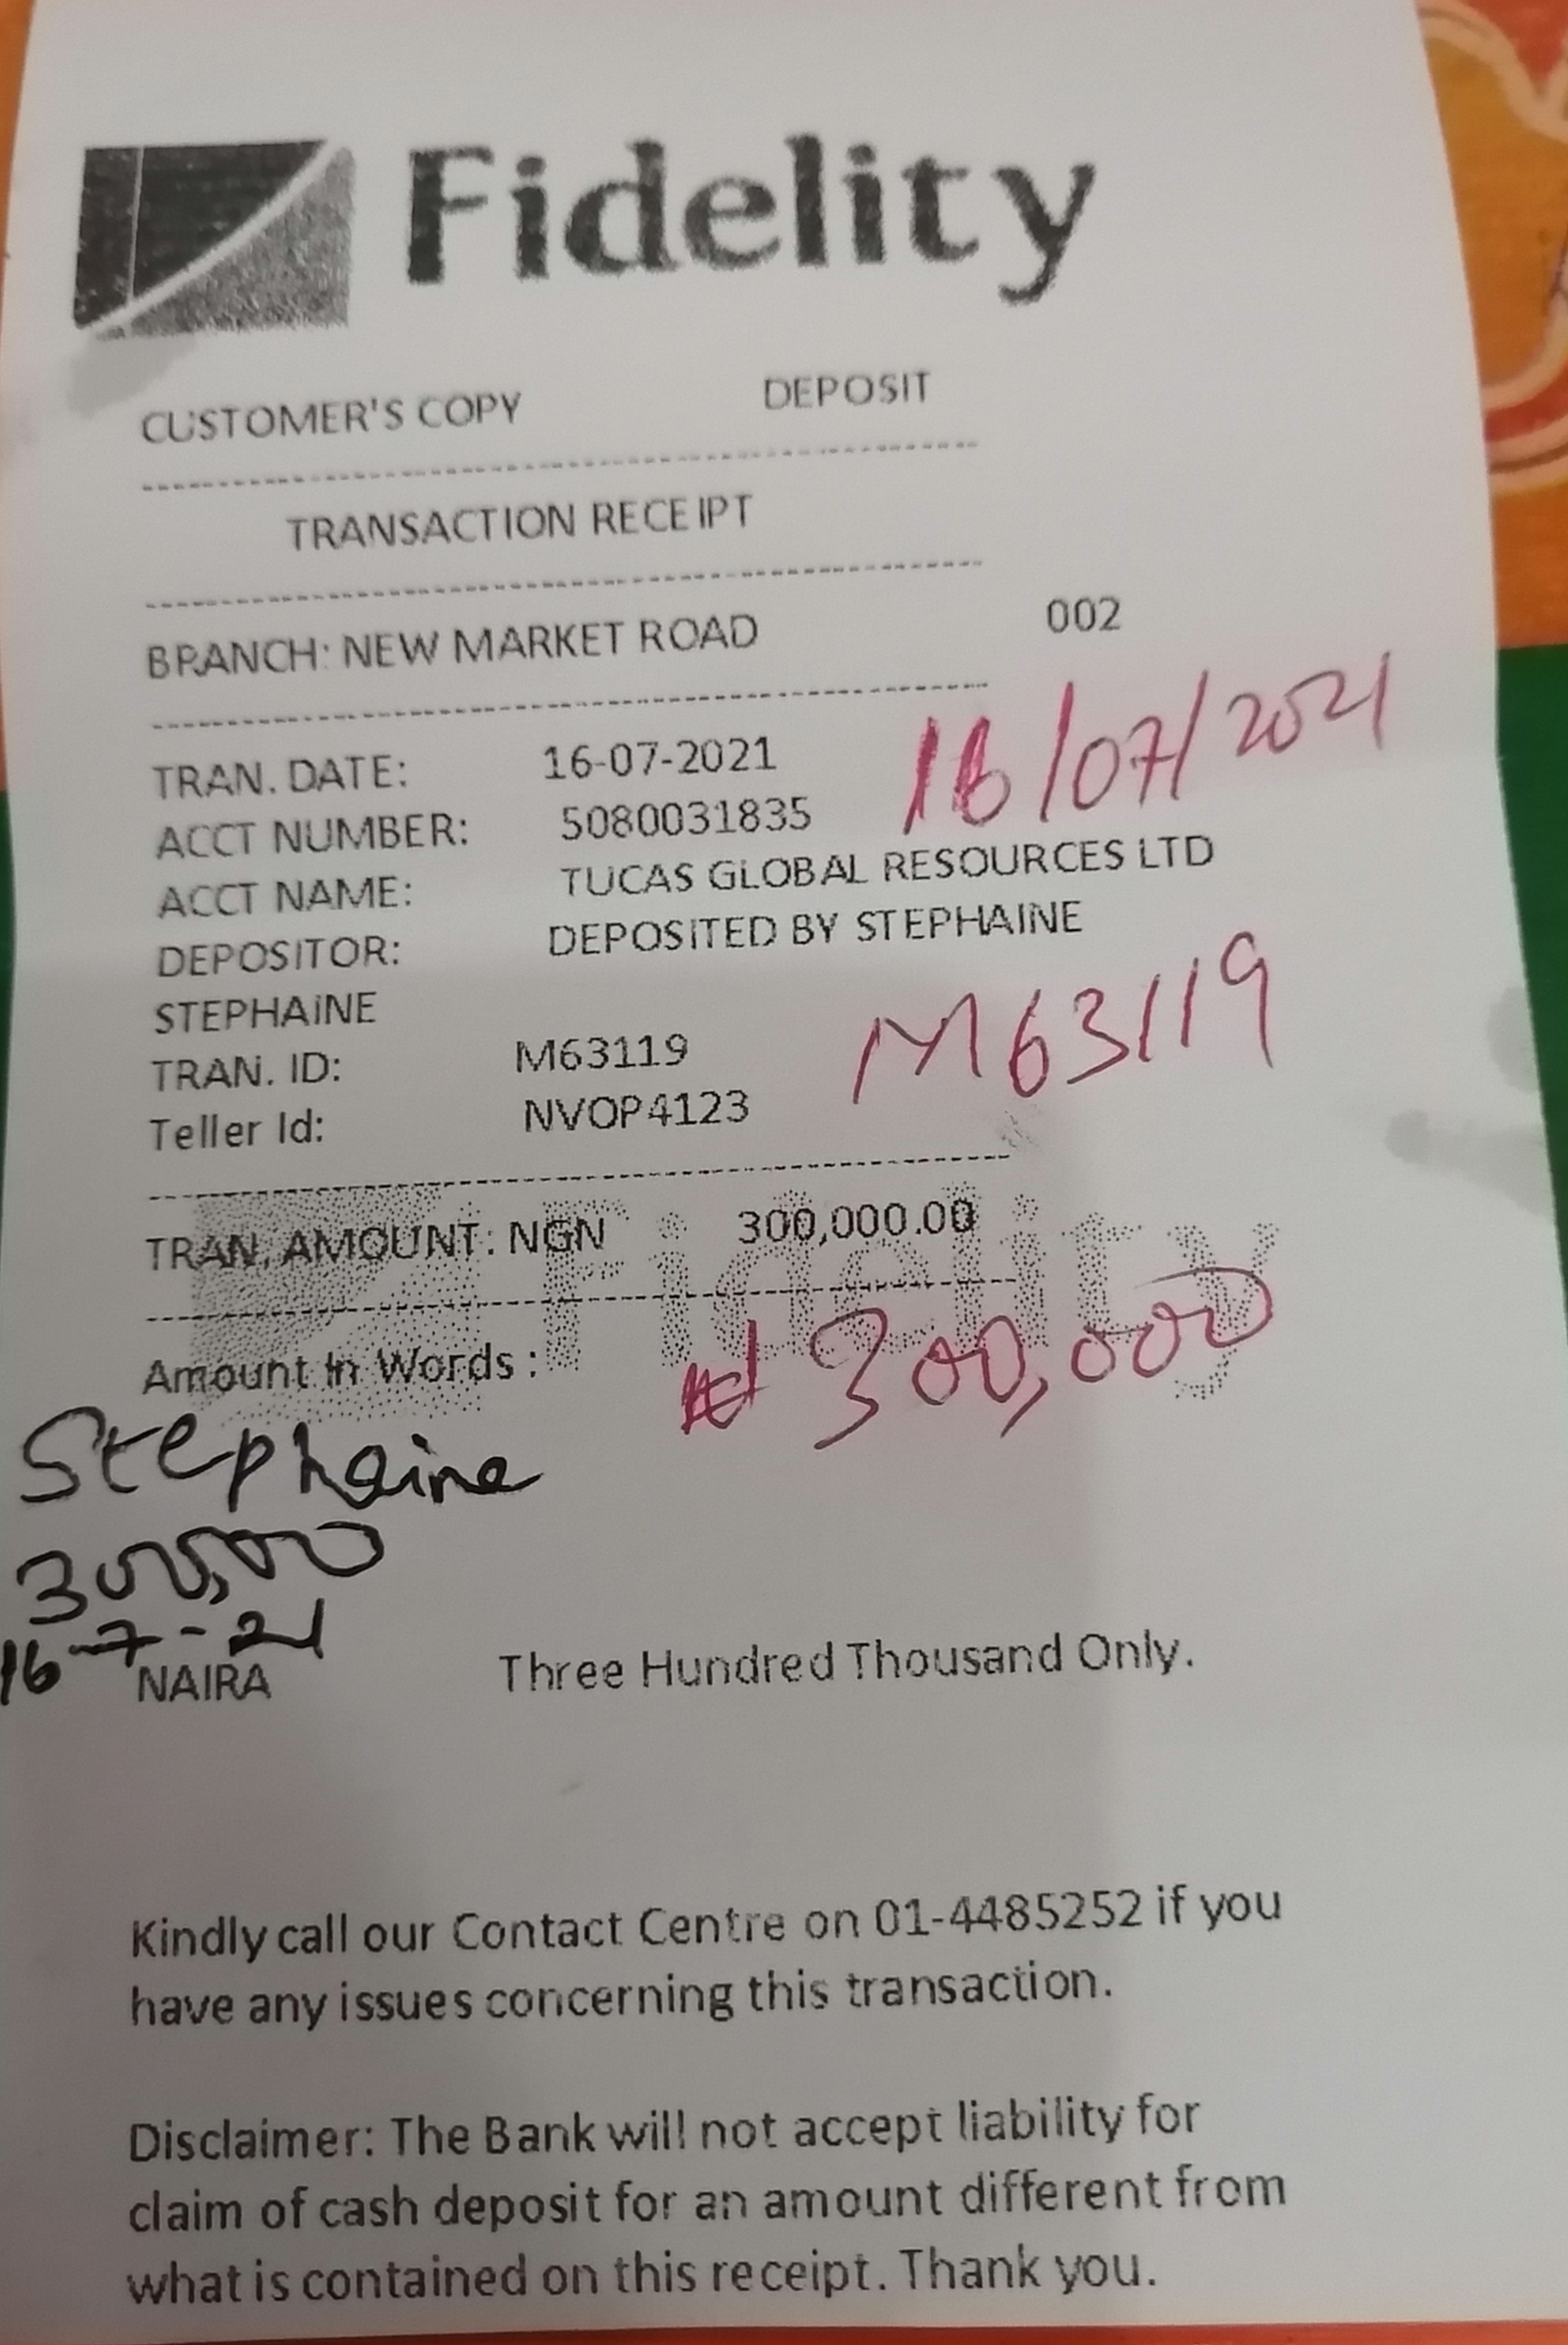 Fidelity
CUSTOMER'S COPY DEPOSIT
TRANSACTION RECEIPT
BRANCH: NEW MARKET ROAD 002
TRAN. DATE: 16-07-2021 16/07/2021
ACCT NUMBER: 5080031835
ACCT NAME: TUCAS GLOBAL RESOURCES LTD
DEPOSITOR: DEPOSITED BY STEPHAINE
STEPHAINE
TRAN. ID: M63119 M63119
Teller Id: NVOP4123
Fidelity
TRAN. AMOUNT: NGN 300,000.00
Amount In Words : ₦ 300,000
Stephaine
300,000
16-7-21
NAIRA Three Hundred Thousand Only.
Kindly call our Contact Centre on 01-4485252 if you
have any issues concerning this transaction.
Disclaimer: The Bank will not accept liability for
claim of cash deposit for an amount different from
what is contained on this receipt. Thank you.